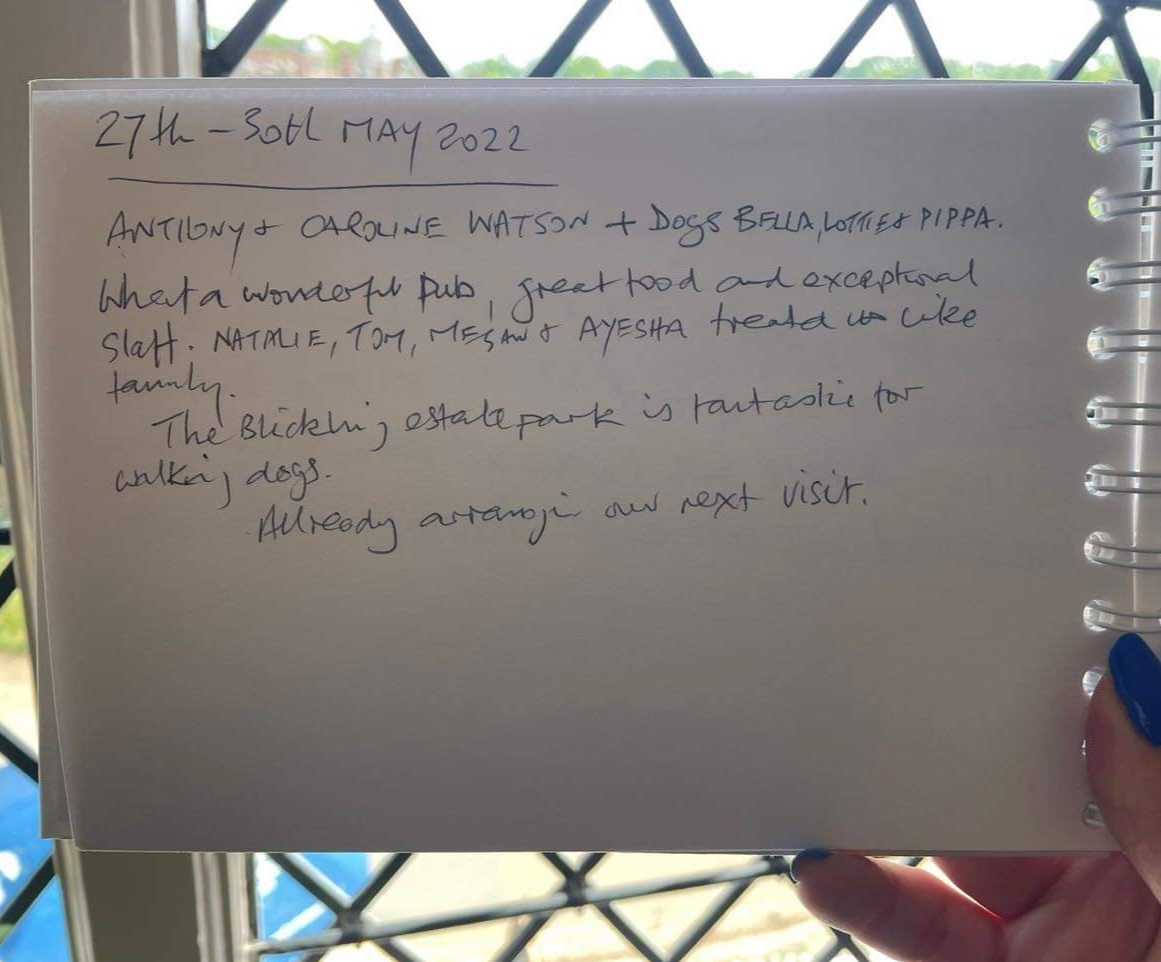 27th - 30th MAY 2022
ANTHONY + CAROLINE WATSON + DOGS BELLA, LOTTIE & PIPPA.
What a wonderful Pub, great food and exceptional
Staff. NATALIE, TOM, MEGAN & AYESHA treated us like
family.
The Blickling estate park is fantastic for
walking dogs.
Allready arranging our next visit.